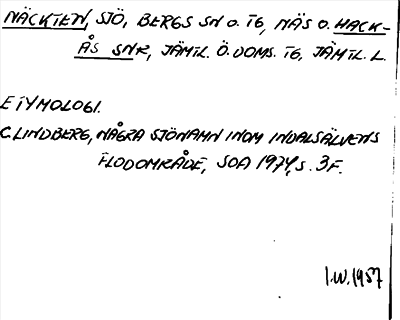 NÄCKTEN, SJÖ, BERGS SN O. TG, NÄS O. HACK-
ÅS SNR, JÄMTL. Ö. DOMS. TG, JÄMTL. L.
ETYMOLOGI.
C. LINDBERG, NÅGRA SJÖNAMN INOM INDALSÄLVENS
FLODOMRÅDE, SOÅ 1974, S. 3 F.
I.W. 1987